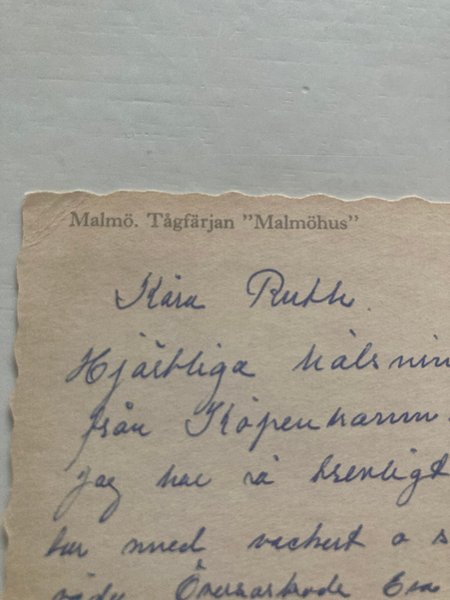 Malmö. Tågfärjan "Malmöhus"
Kära Ruth.
Hjärtliga hälsnin
från Köpenhamn.
Jag har så trevligt
tur med vackert o s
Överraskade Eva